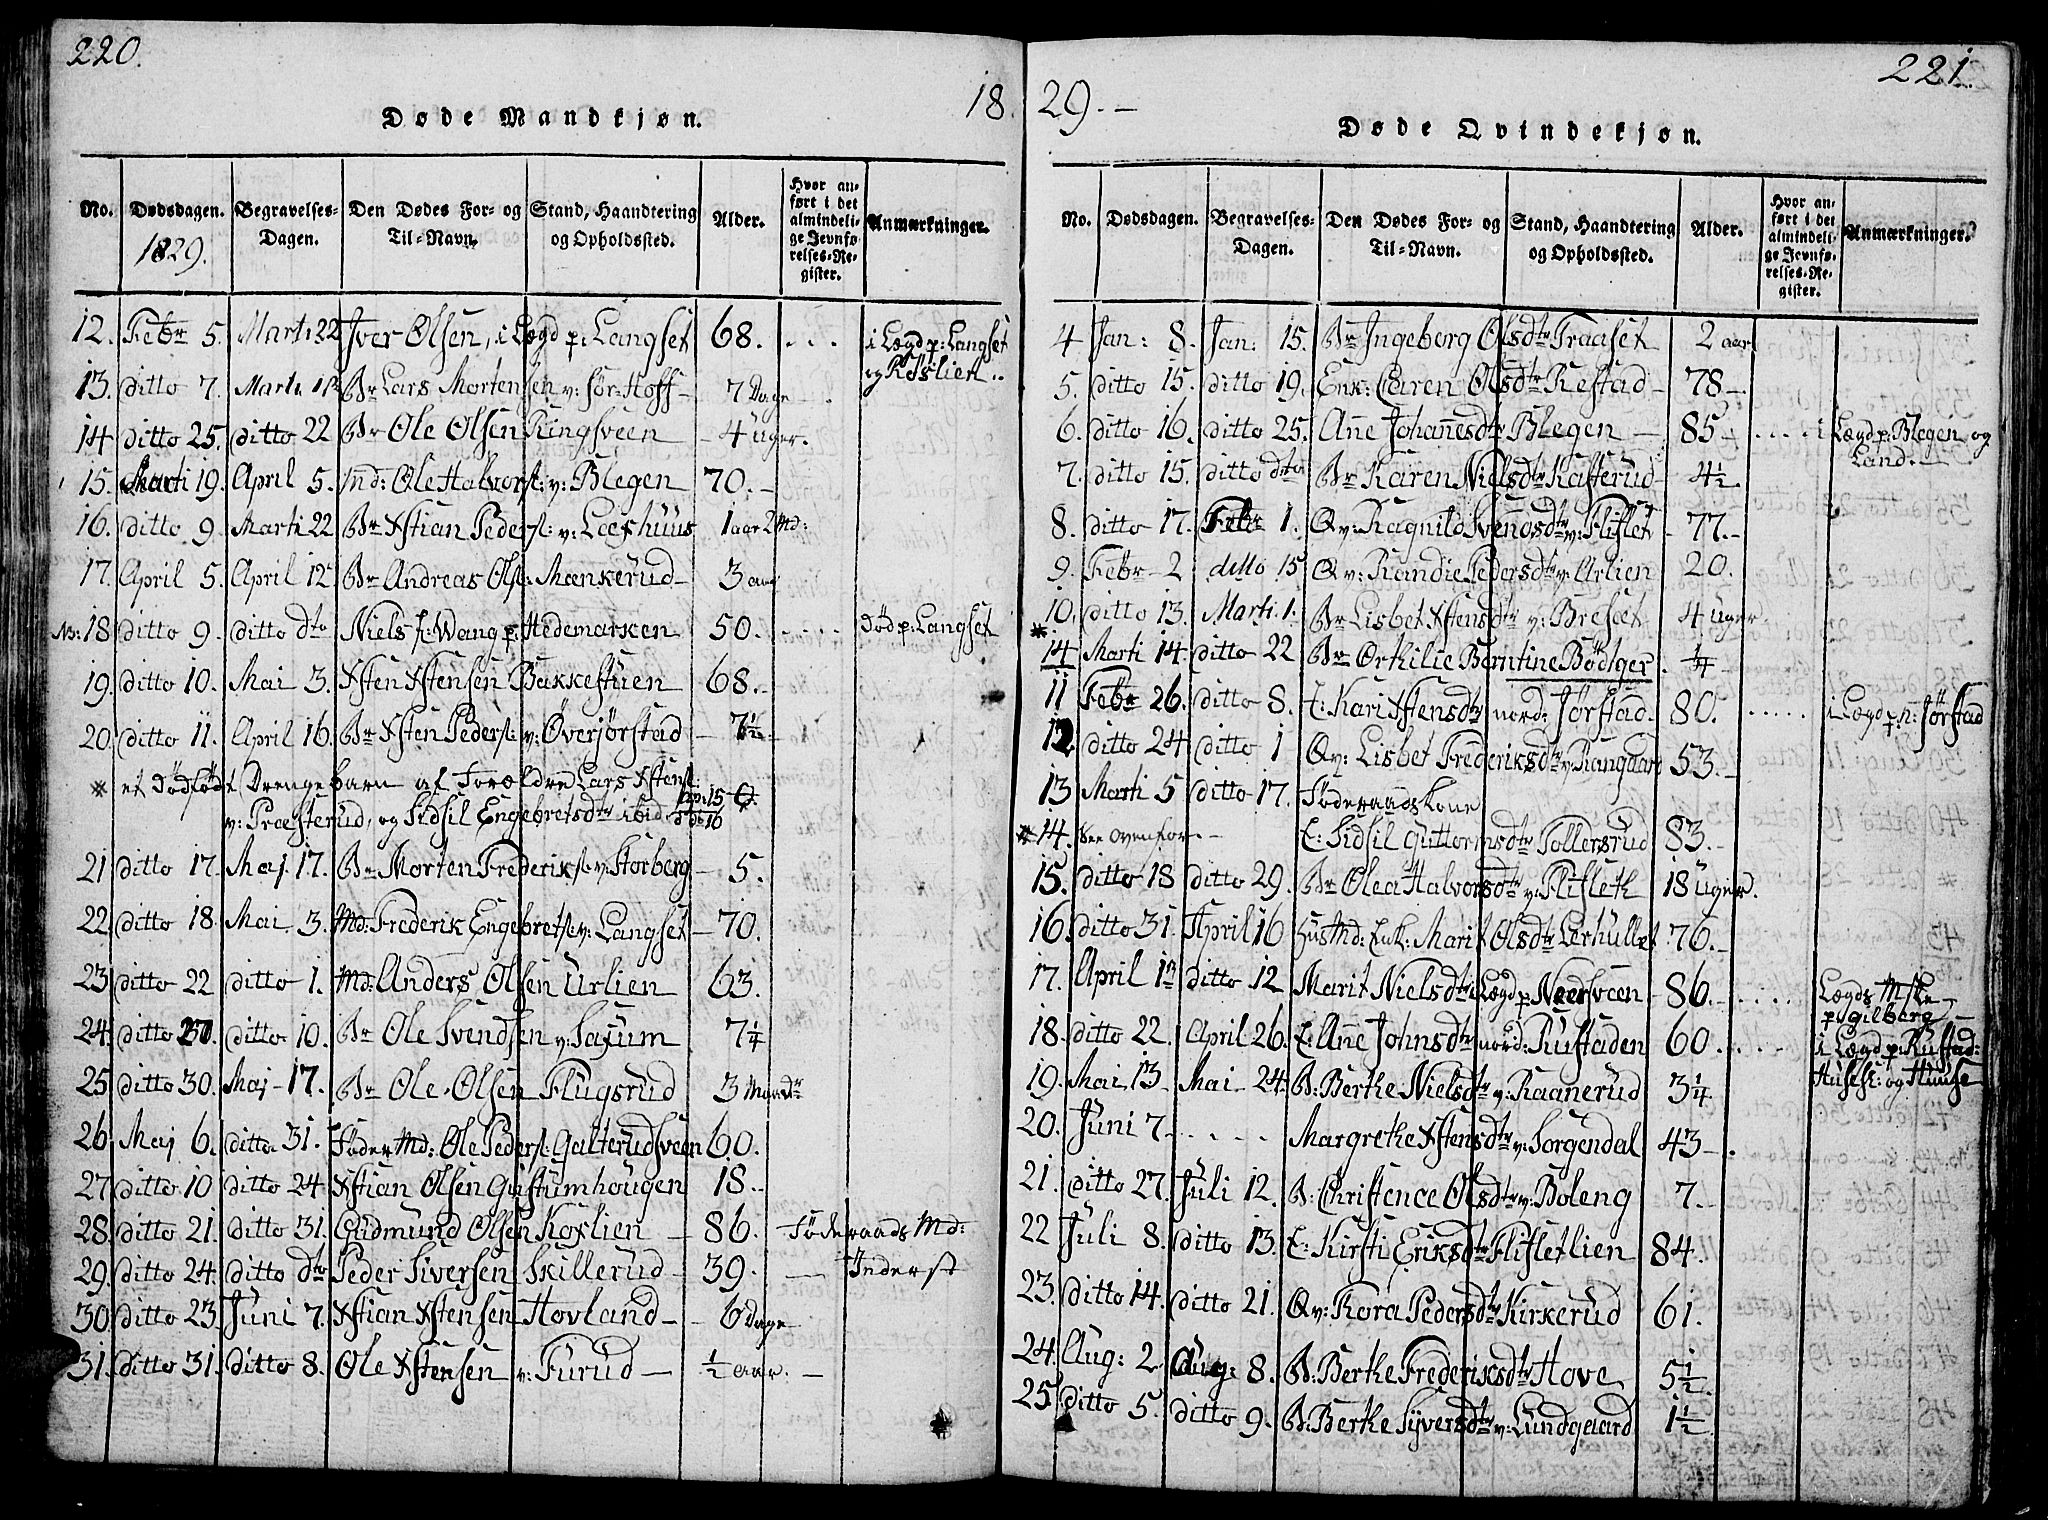 220.
18
Døde Mandkjøn.
No. Dødsdagen. 1829. Begravelses-Dagen. Den Dødes For- og Til-Navn. Stand, Haandtering og Opholdssted. Alder. Hvor anført i det almindelige Jevnførelses-Register. Anmærkninger.
12. Febr 5. Marti 22 Iver Olsen, i Lægd p: Langset 68. . . . i Lægd p: Langset
og Koslien..
13. ditto 7. Marti Br Lars Mortensen v: Sør: Hoff - 7 Dage -
14 ditto 25. ditto 22 Br Ole Olsen Ringsveen - 4 uger.
15. Marti 19. April 5. Ind: Ole Halvors: v: Blegen 70. -
16. ditto 9. Marti 22 Br Xstian Peders: v: Leeshuus 1 aar 2 Md:
17. April 5. April 12 Br Andreas Ols: Mænkerud - 3 aar
NB: 18 ditto 9. ditto dto Niels f: Wang p: Hedemarken 50. . . . . Død p: Langset
19. ditto 10. Mai 3. Xsten Xstensen Bakkestuen 68. -
20. ditto 11. April 16. Br Xsten Peders: v: Øverjørstad - 7½ -
* et Dødfødt Drengebarn af Forældre Lars Xstens:
v: Præsterud, og Sidsil Engebretsdtr ibid. Ap: 15 0.
dto 16
21 ditto 17. Maj. 17. Br Morten Frederiks: v: Storberg - 5.
22. ditto 18. Mai 3. Md: Frederik Engebrets: v: Langset - 70.
23 ditto 22 ditto 1. Md: Anders Olsen Urlien 63.
24. ditto 20. ditto 10. Br Ole Svendsen v: Saxum 7¼
25 ditto 30. Maj - 17. Br Ole Olsen Flugsrud 3 Maandr
26. Maj 6. ditto 31. Føder Md: Ole Peders: Galterudsveen 60.
27. ditto 10 ditto 24 Xstian Olsen Gustumhougen 18. -
28. ditto 21. ditto 31. Gudmund Olsen Koxlien - 86. - Føderaads Md:
29. ditto 24. ditto dto Peder Siversen Skillerud - 39. - Inderst
30. ditto 23. Juni 7. Xstian Xstensen Hovland - - 6 Dage
31. ditto 31. ditto 8. Ole Xstensen v: Furud - ½ aar. -
29. -
221.
Døde Qvindekjøn.
No. Dødsdagen. Begravelses-Dagen. Den Dødes For- og Til-Navn. Stand, Haandtering og Opholdssted. Alder. Hvor anført i det almindelige Jevnførelses-Register. Anmærkninger.
4 Jan: 8. Jan: 15. Br Ingeborg Olsdtr Traaset 2 aar
5. ditto 15. ditto 19. Enk: Caren Olsdtr Refstad - 78 -
6. ditto 16. ditto 25. Ane Johanesdtr Blegen - 85 - . . . . i Lægd p: Blegen og
Land. -
7. ditto 15. ditto dto Br Karen Nielsdtr Kasterud - 4½
8. ditto 17. Febr 1. Qv: Ragnild Svendsdtr v: Flislet - 77. -
9. Febr - 2 ditto 15 Qv: Randie Pedersdtr v: Urlien 20.
10. ditto 13. Marti. 1. Br Lisbet Xstensdtr v: Breset 4 uger
* 14 Marti 14. ditto 22 Br Othilie Berntine Bödtger - ¼ -
11 Febr 26. ditto 8. E: Kari Xstensdtr nord: Jørstad. 80. . . . . . i Lægd p: n: Jørstad
12. ditto 24. ditto 1 Qv: Lisbet Frederiksdtr v: Rangaard 53. -
13 Marti 5 ditto 17. Føderaads Kone
* 14. See ovenfor. - E: Sidsil Guttormsdtr Tollersrud 83. -
15. ditto 18 ditto 29. Br Olea Halvorsdtr v: Flisleth 18 Uger.
16. ditto 31. April 16 HusMd: Enk: Marit Olsdtr Lerhullet 76. -
17. April 1 ditto 12 Marit Nielsdtr i Lægd p: Nordsveen - 86. - . . . . Lægds
p: Gilberg -
18. ditto 22. April 26. E: Ane Johnsdtr nord: Rustaden 60. . . . . i Lægd p: Rustad:
19. Mai 13. Mai 24. B: Berthe Nielsdtr v: Raanerud 3¼ og Huuse
20. Juni 7. . . . . Margrethe Xstensdtr v: Sorgendal 43 - .
21. ditto 27. Juli 12. B: Christence Olsdtr v: Boleng 7. -
22 Juli 8. ditto 13. E: Kirsti Eriksdtr Flisletlien 84.
23. ditto 14. ditto 21. Qv: Kora Pedersdtr Kirkerud 61.
24. Aug: 2. Aug: 8. B: Berthe Frederiksdtr Hove 5½.
25. ditto 5. ditto 9. B: Berthe Syversdtr v: Lundgaard 1½